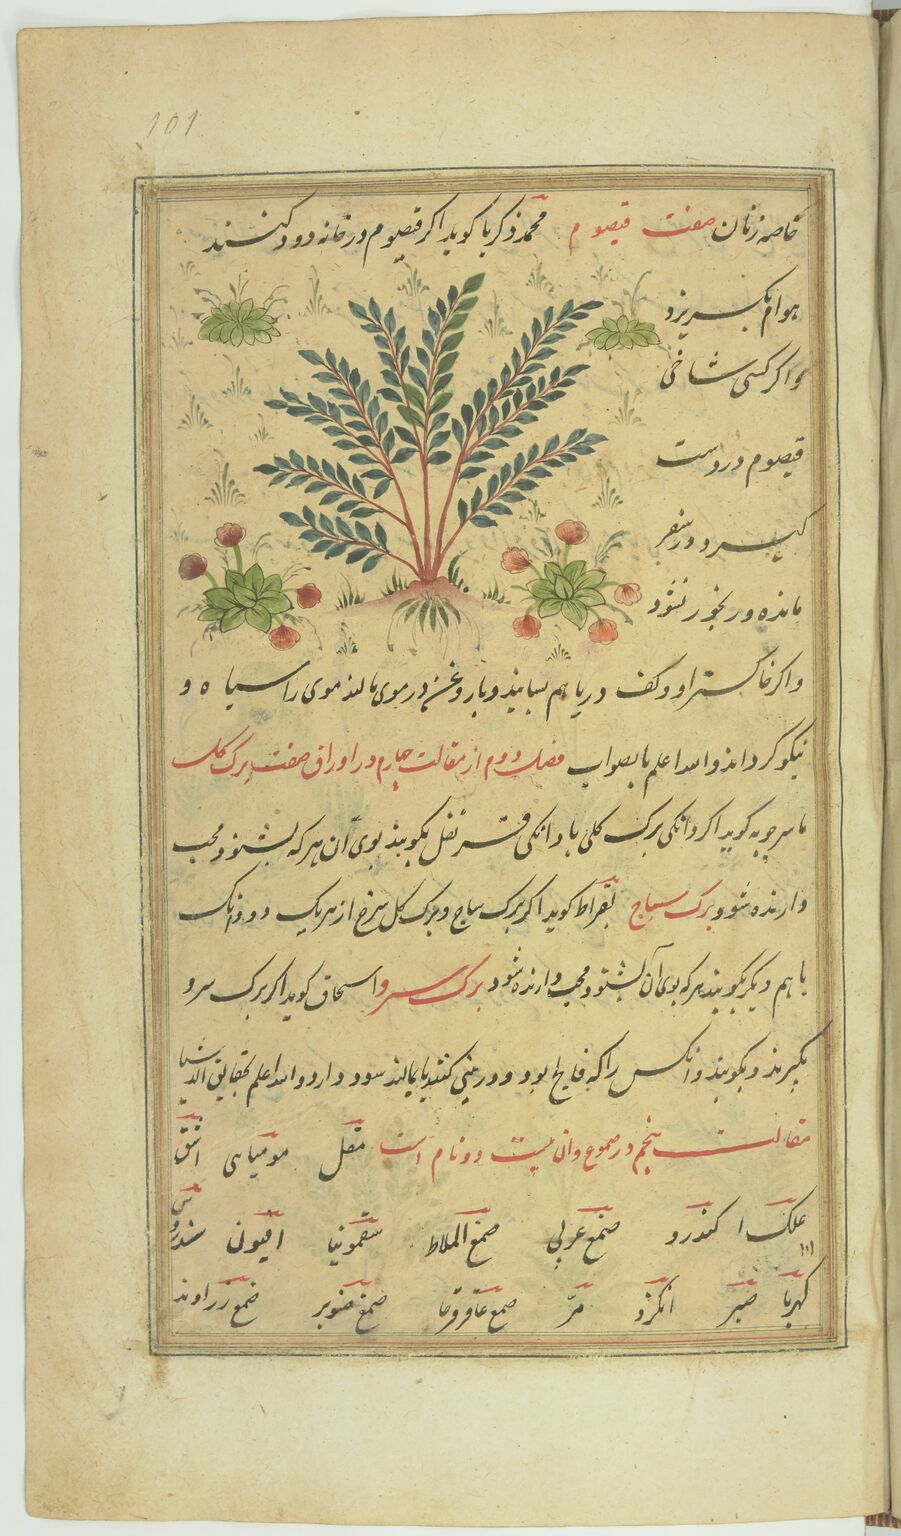 101
خاصه زنان صفت قیصوم محمد زکریا کوید اکر قیصوم در خانه دود کنند
هوام بکریزد
واکر کسی شاخی
قیصوم در دست
کیرد و در سفر
مانده و رنجور نشود
واکر خاکستر او و کف دریا بهم بسایند و با روغن در موی مالند موی را سیاه و
نیکو کرداند والله اعلم بالصواب فصل دوم از مقالت چهارم در اوراق صفت برک کل
ماسرجویه کوید اکر دانکی برک کلی با دانکی قرنفل بکوبند بوی آن هر که بشنود محب
دارنده شود برک سیاج بقراط کوید اکر برک سیاج و برک کل سرخ از هر یک دو دانک
با هم دیکر بکوبند هر که بوی آن بشنود محب دارنده شود برک سرو اسحاق کوید اکر برک سرو
بکیرند و بکوبند و آنکس را که فالج بود و در بینی کنند یا بمالند سود دارد والله اعلم بحقایق الاشیا
مقالت پنجم در صموغ وان بیست دو نام است مقل مومیایی اشق
علک ا کندرو صمغ عربی صمغ الملاط سقمونیا افیون سندروس
کهربا صبر انکزد مرّ صمغ عاقرقرحا صمغ صنوبر صمغ زراوند